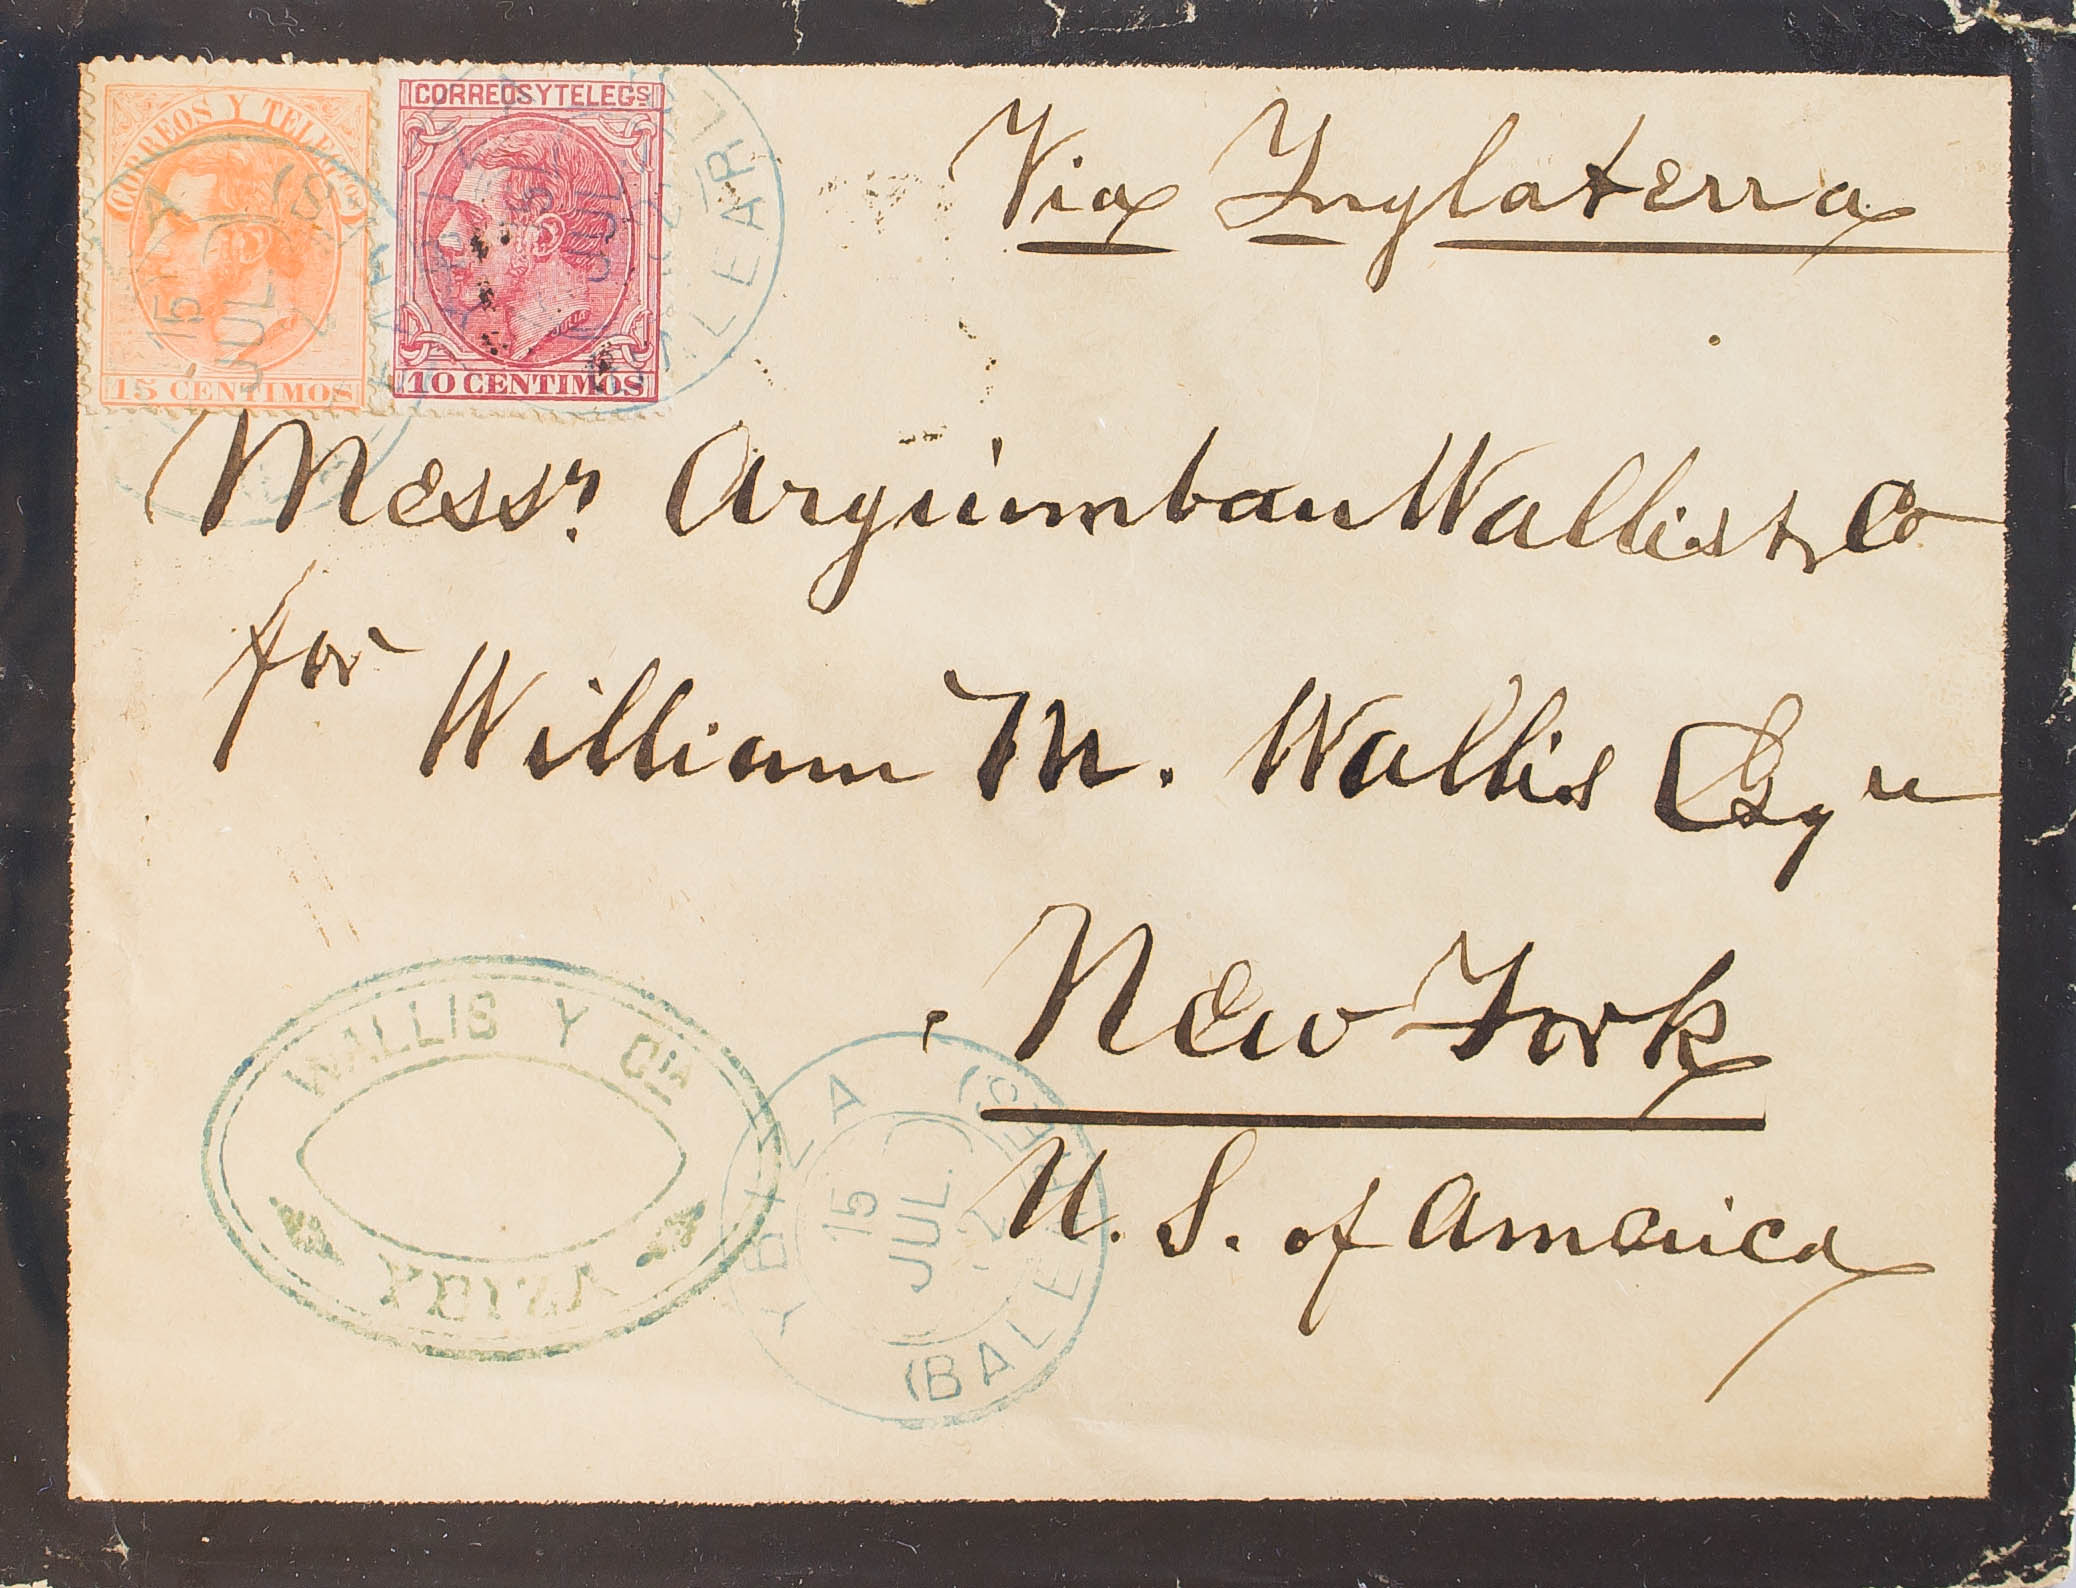 CORREOS Y TELEGˢ
CORREOS Y TELEGˢ
15 CENTIMOS
10 CENTIMOS
Via Inglaterra
Messrs. Arguimbau Wallis & Co
for William M. Wallis Esqre
New York
U. S. of America
WALLIS Y CIA
YBIZA
YBIZA
15
JUL.
(BALEARES)